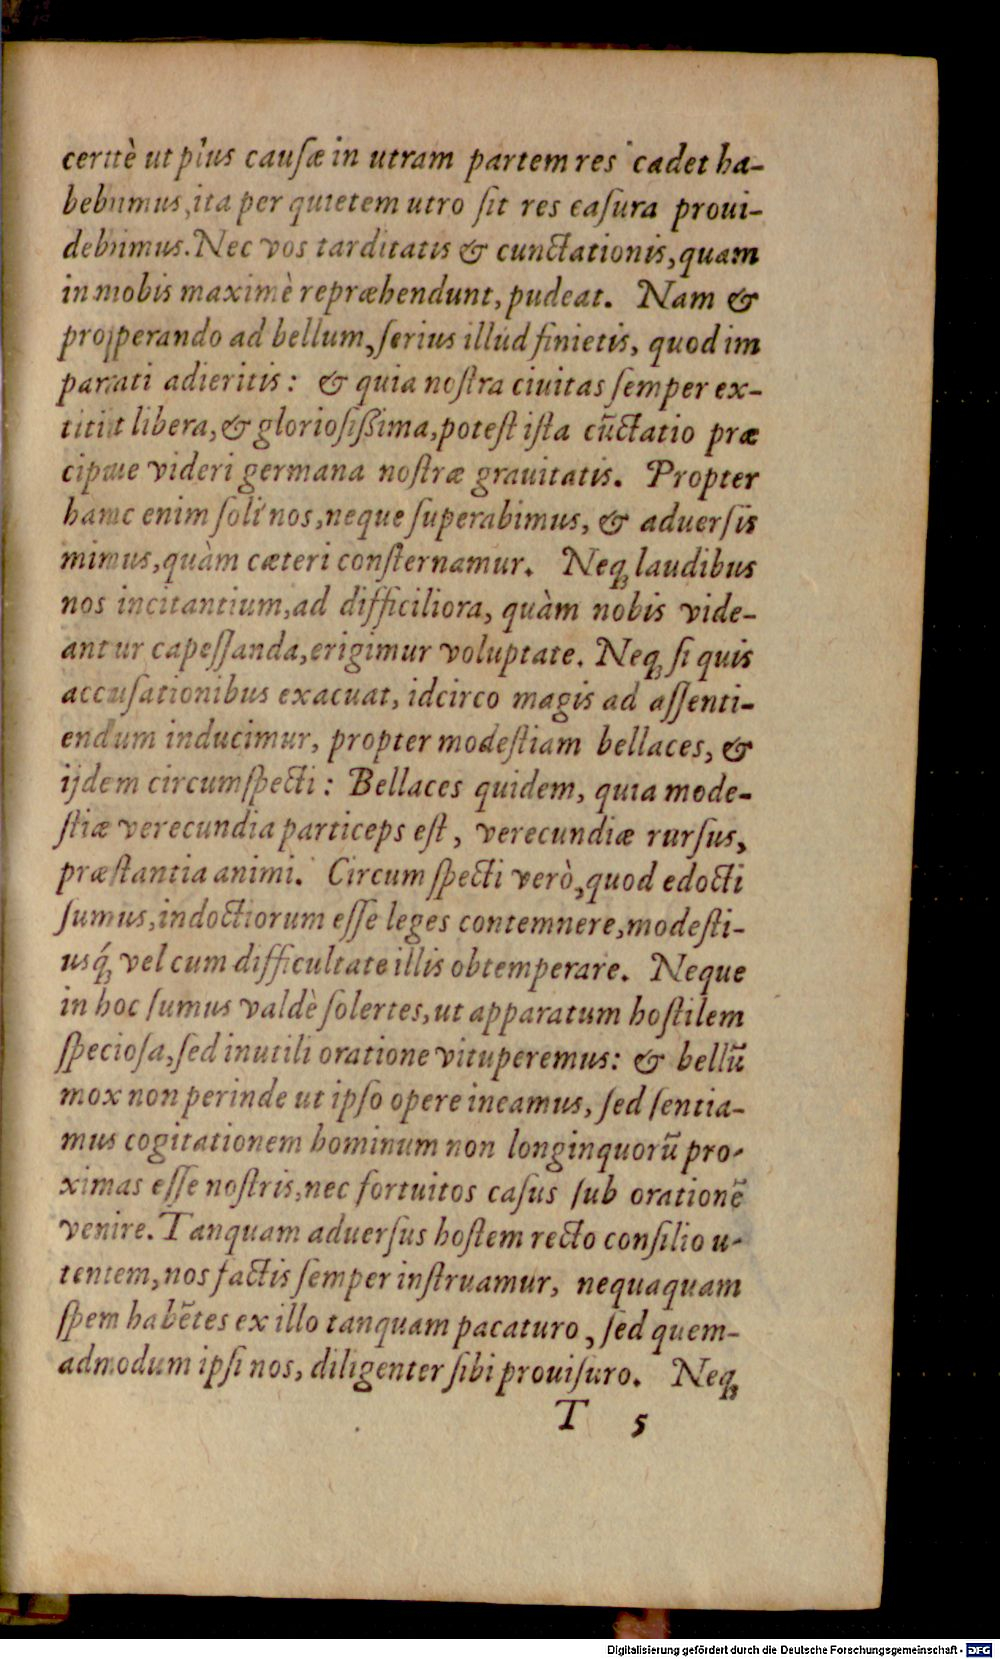 certè ut plus causæ in utram partem res cadet ha-
bebimus, ita per quietem utro sit res casura proui-
debimus. Nec vos tarditatis & cunctationis, quam
in nobis maximè repræhendunt, pudeat. Nam &
properando ad bellum, serius illud finietis, quod im
parati adieritis: & quia nostra ciuitas semper ex-
titit libera, & gloriosißima, potest ista cūctatio præ
cipue videri germana nostræ grauitatis. Propter
hanc enim soli nos, neque superabimus, & aduersis
minus, quàm cæteri consternamur. Neq; laudibus
nos incitantium, ad difficiliora, quàm nobis vide-
antur capessanda, erigimur voluptate. Neq; si quis
accusationibus exacuat, idcirco magis ad assenti-
endum inducimur, propter modestiam bellaces, &
ijdem circumspecti: Bellaces quidem, quia mode-
stiæ verecundia particeps est, verecundiæ rursus,
præstantia animi. Circumspecti verò, quod edocti
sumus, indoctiorum esse leges contemnere, modesti-
usq́; vel cum difficultate illis obtemperare. Neque
in hoc sumus valdè solertes, ut apparatum hostilem
speciosa, sed inutili oratione vituperemus: & bellū
mox non perinde ut ipso opere ineamus, sed sentia-
mus cogitationem hominum non longinquorū pro-
ximas esse nostris, nec fortuitos casus sub orationē
venire. Tanquam aduersus hostem recto consilio u-
tentem, nos factis semper instruamur, nequaquam
spem habētes ex illo tanquam pacaturo, sed quem-
admodum ipsi nos, diligenter sibi prouisuro. Neq;
T 5
Digitalisierung gefördert durch die Deutsche Forschungsgemeinschaft - DFG